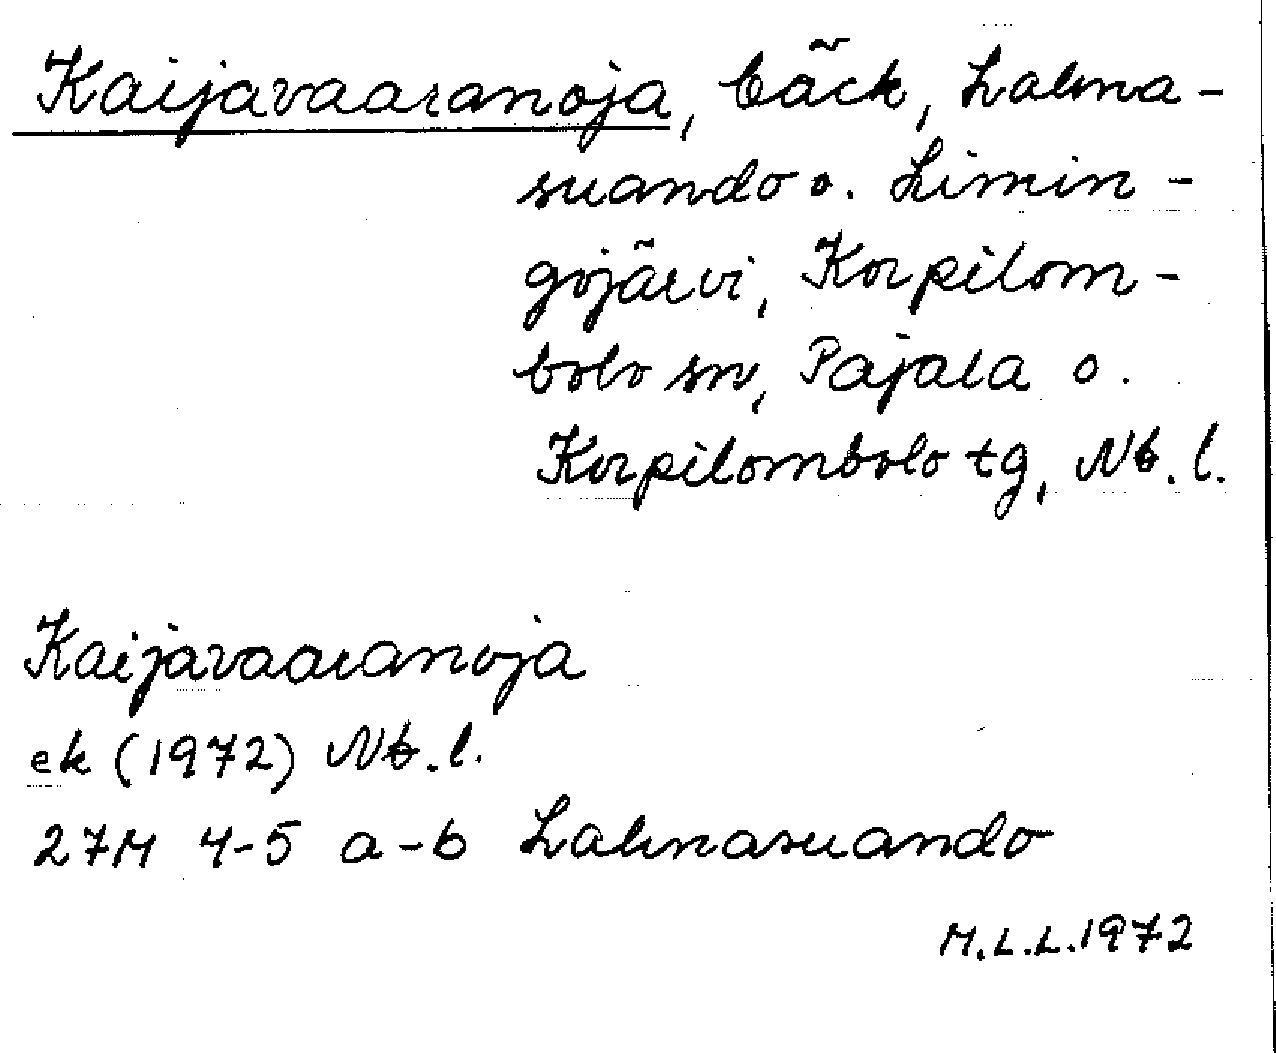 Kaijavaaranoja, bäck, Lahna-
suando o. Limin-
gojärvi, Korpilom-
bolo sn, Pajala o.
Korpilombolo tg, Nb.l.
Kaijavaaranoja
ek (1972) Nb.l.
27M 4-5 a-b Lahnasuando
M.L.L.1972